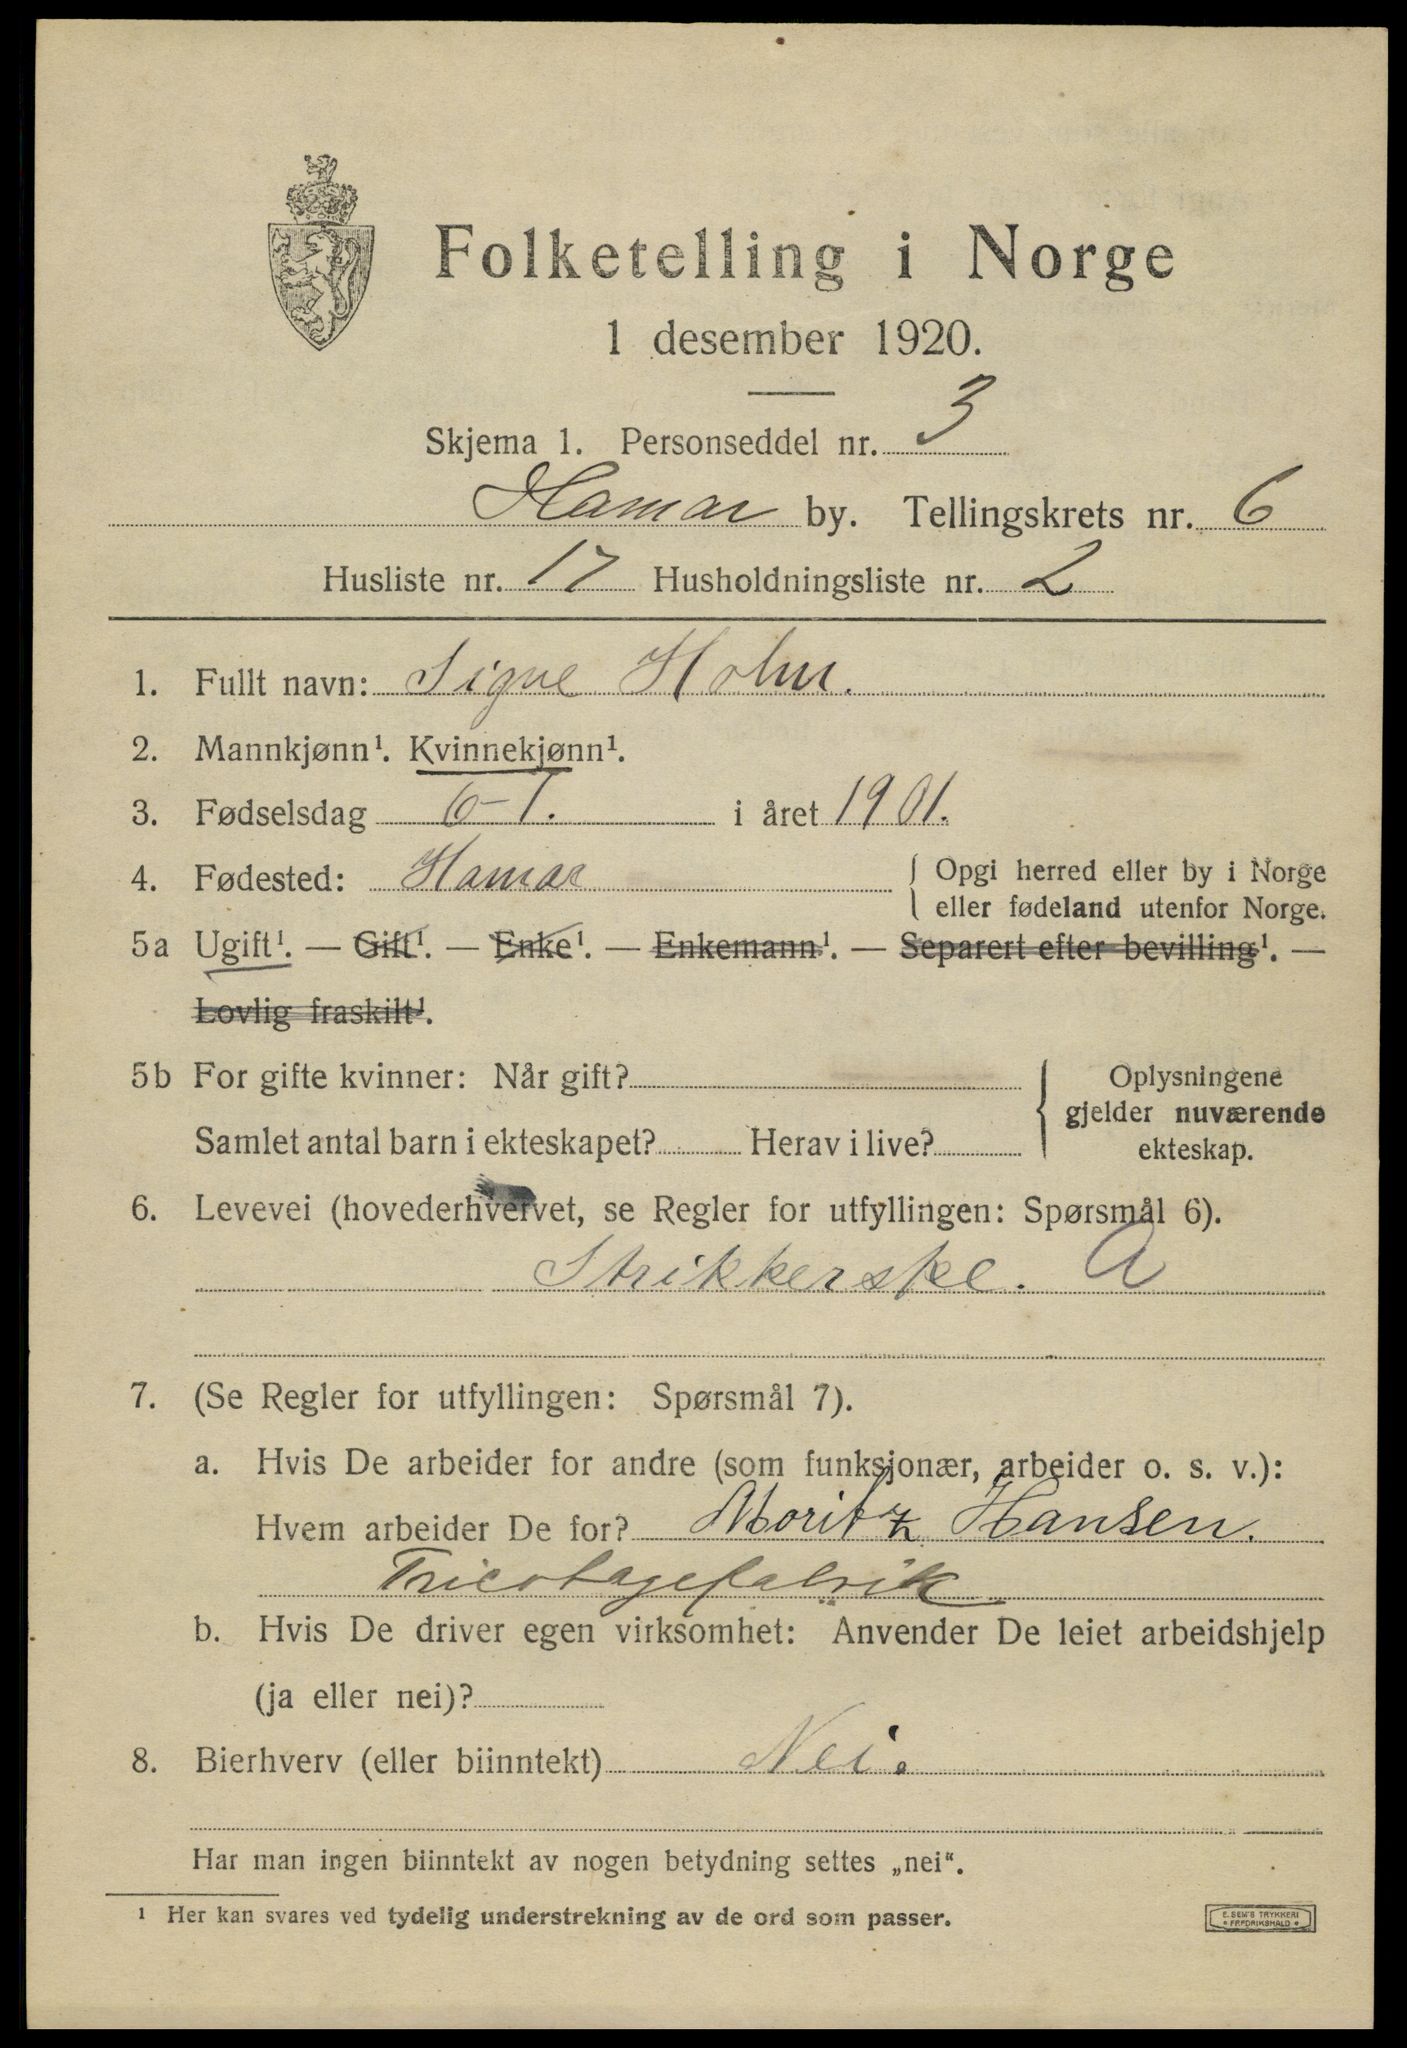 Folketelling i Norge
1 desember 1920.
Skjema 1. Personseddel nr. 3
Hamar by. Tellingskrets nr. 6
Husliste nr. 17 Husholdningsliste nr. 2
1. Fullt navn: Signe Holm.
2. Mannkjønn¹. Kvinnekjønn¹.
3. Fødselsdag 6-1. i året 1901.
4. Fødested: Hamar { Opgi herred eller by i Norge
eller fødeland utenfor Norge.
5a Ugift¹. — Gift¹. — Enke¹. — Enkemann¹. — Separert efter bevilling¹. —
Lovlig fraskilt¹.
5b For gifte kvinner: Når gift?
Samlet antal barn i ekteskapet? Herav i live?
{ Oplysningene
gjelder nuværende
ekteskap.
6. Levevei (hovederhvervet, se Regler for utfyllingen: Spørsmål 6).
Strikkerske. A
7. (Se Regler for utfyllingen: Spørsmål 7).
a. Hvis De arbeider for andre (som funksjonær, arbeider o. s. v.):
Hvem arbeider De for? Moritz Hansen.
Tricotagefabrik
b. Hvis De driver egen virksomhet: Anvender De leiet arbeidshjelp
(ja eller nei)?
8. Bierhverv (eller biinntekt) Nei.
Har man ingen biinntekt av nogen betydning settes „nei“.
¹ Her kan svares ved tydelig understrekning av de ord som passer.
E. SEM'S TRYKKERI
FREDRIKSHALD